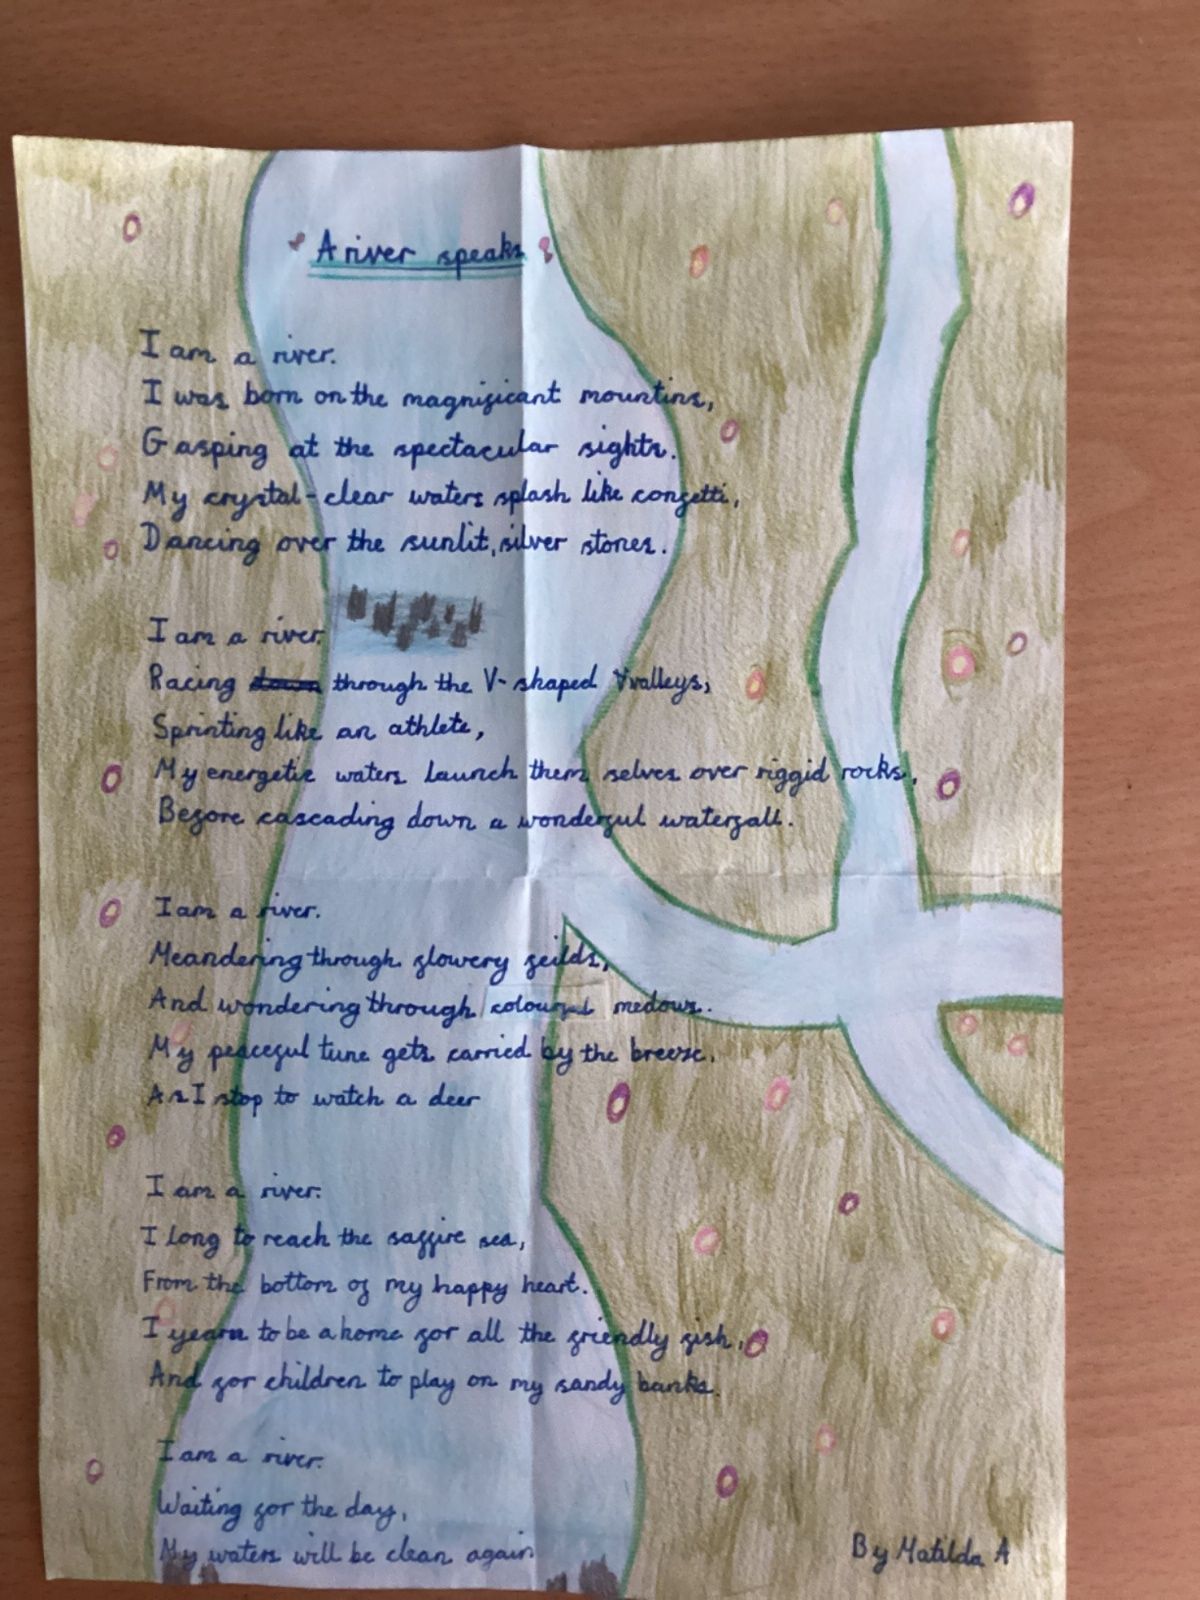 A river speaks
I am a river.
I was born on the magnificant mountins,
Gasping at the spectacular sights.
My crystal-clear waters splash like confetti,
Dancing over the sunlit, silver stones.
I am a river.
Racing down through the V-shaped Vvalleys,
Sprinting like an athlete,
My energetic waters launch them selves over riggid rocks,
Before cascading down a wonderful waterfall.
I am a river.
Meandering through flowery feilds,
And wondering through coloured medows.
My peaceful tune gets carried by the breeze,
As I stop to watch a deer
I am a river.
I long to reach the saffire sea,
From the bottom of my happy heart.
I yearn to be a home for all the friendly fish,
And for children to play on my sandy banks.
I am a river.
Waiting for the day,
My waters will be clean again
By Matilda A